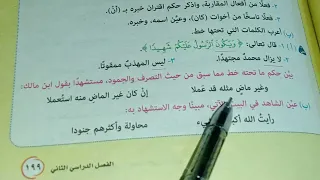 ٢. فعلًا من أفعال المقاربة، واذكر حكم اقتران خبره بـ (أن).
فعلًا ناسخًا من أخوات (كان)، وعيِّن اسمه، وخبره.
(أ) أعرب الكلمات التي تحتها خط.
١. قال تعالى: ﴿وَيَكُونَ ٱلرَّسُولُ عَلَيْكُمْ شَهِيدًا﴾.
٢. لا يزال محمدٌ مجتهدًا. ٣. ليس المهذبُ ممقوتًا.
بيِّن حكم ما تحته خط مما سبق من حيث التصرف والجمود، مستشهدًا بقول ابن مالك:
وغير ماضٍ مثله قد عملا إنْ كان غير الماضِ منه استُعملا
(ب) عيِّن الشاهد في البيت مبينًا وجه الاستشهاد به:
رأيتُ الله أكبر محاولة وأكثرهم جنودا
الفصل الدراسي الثاني ١٩٩